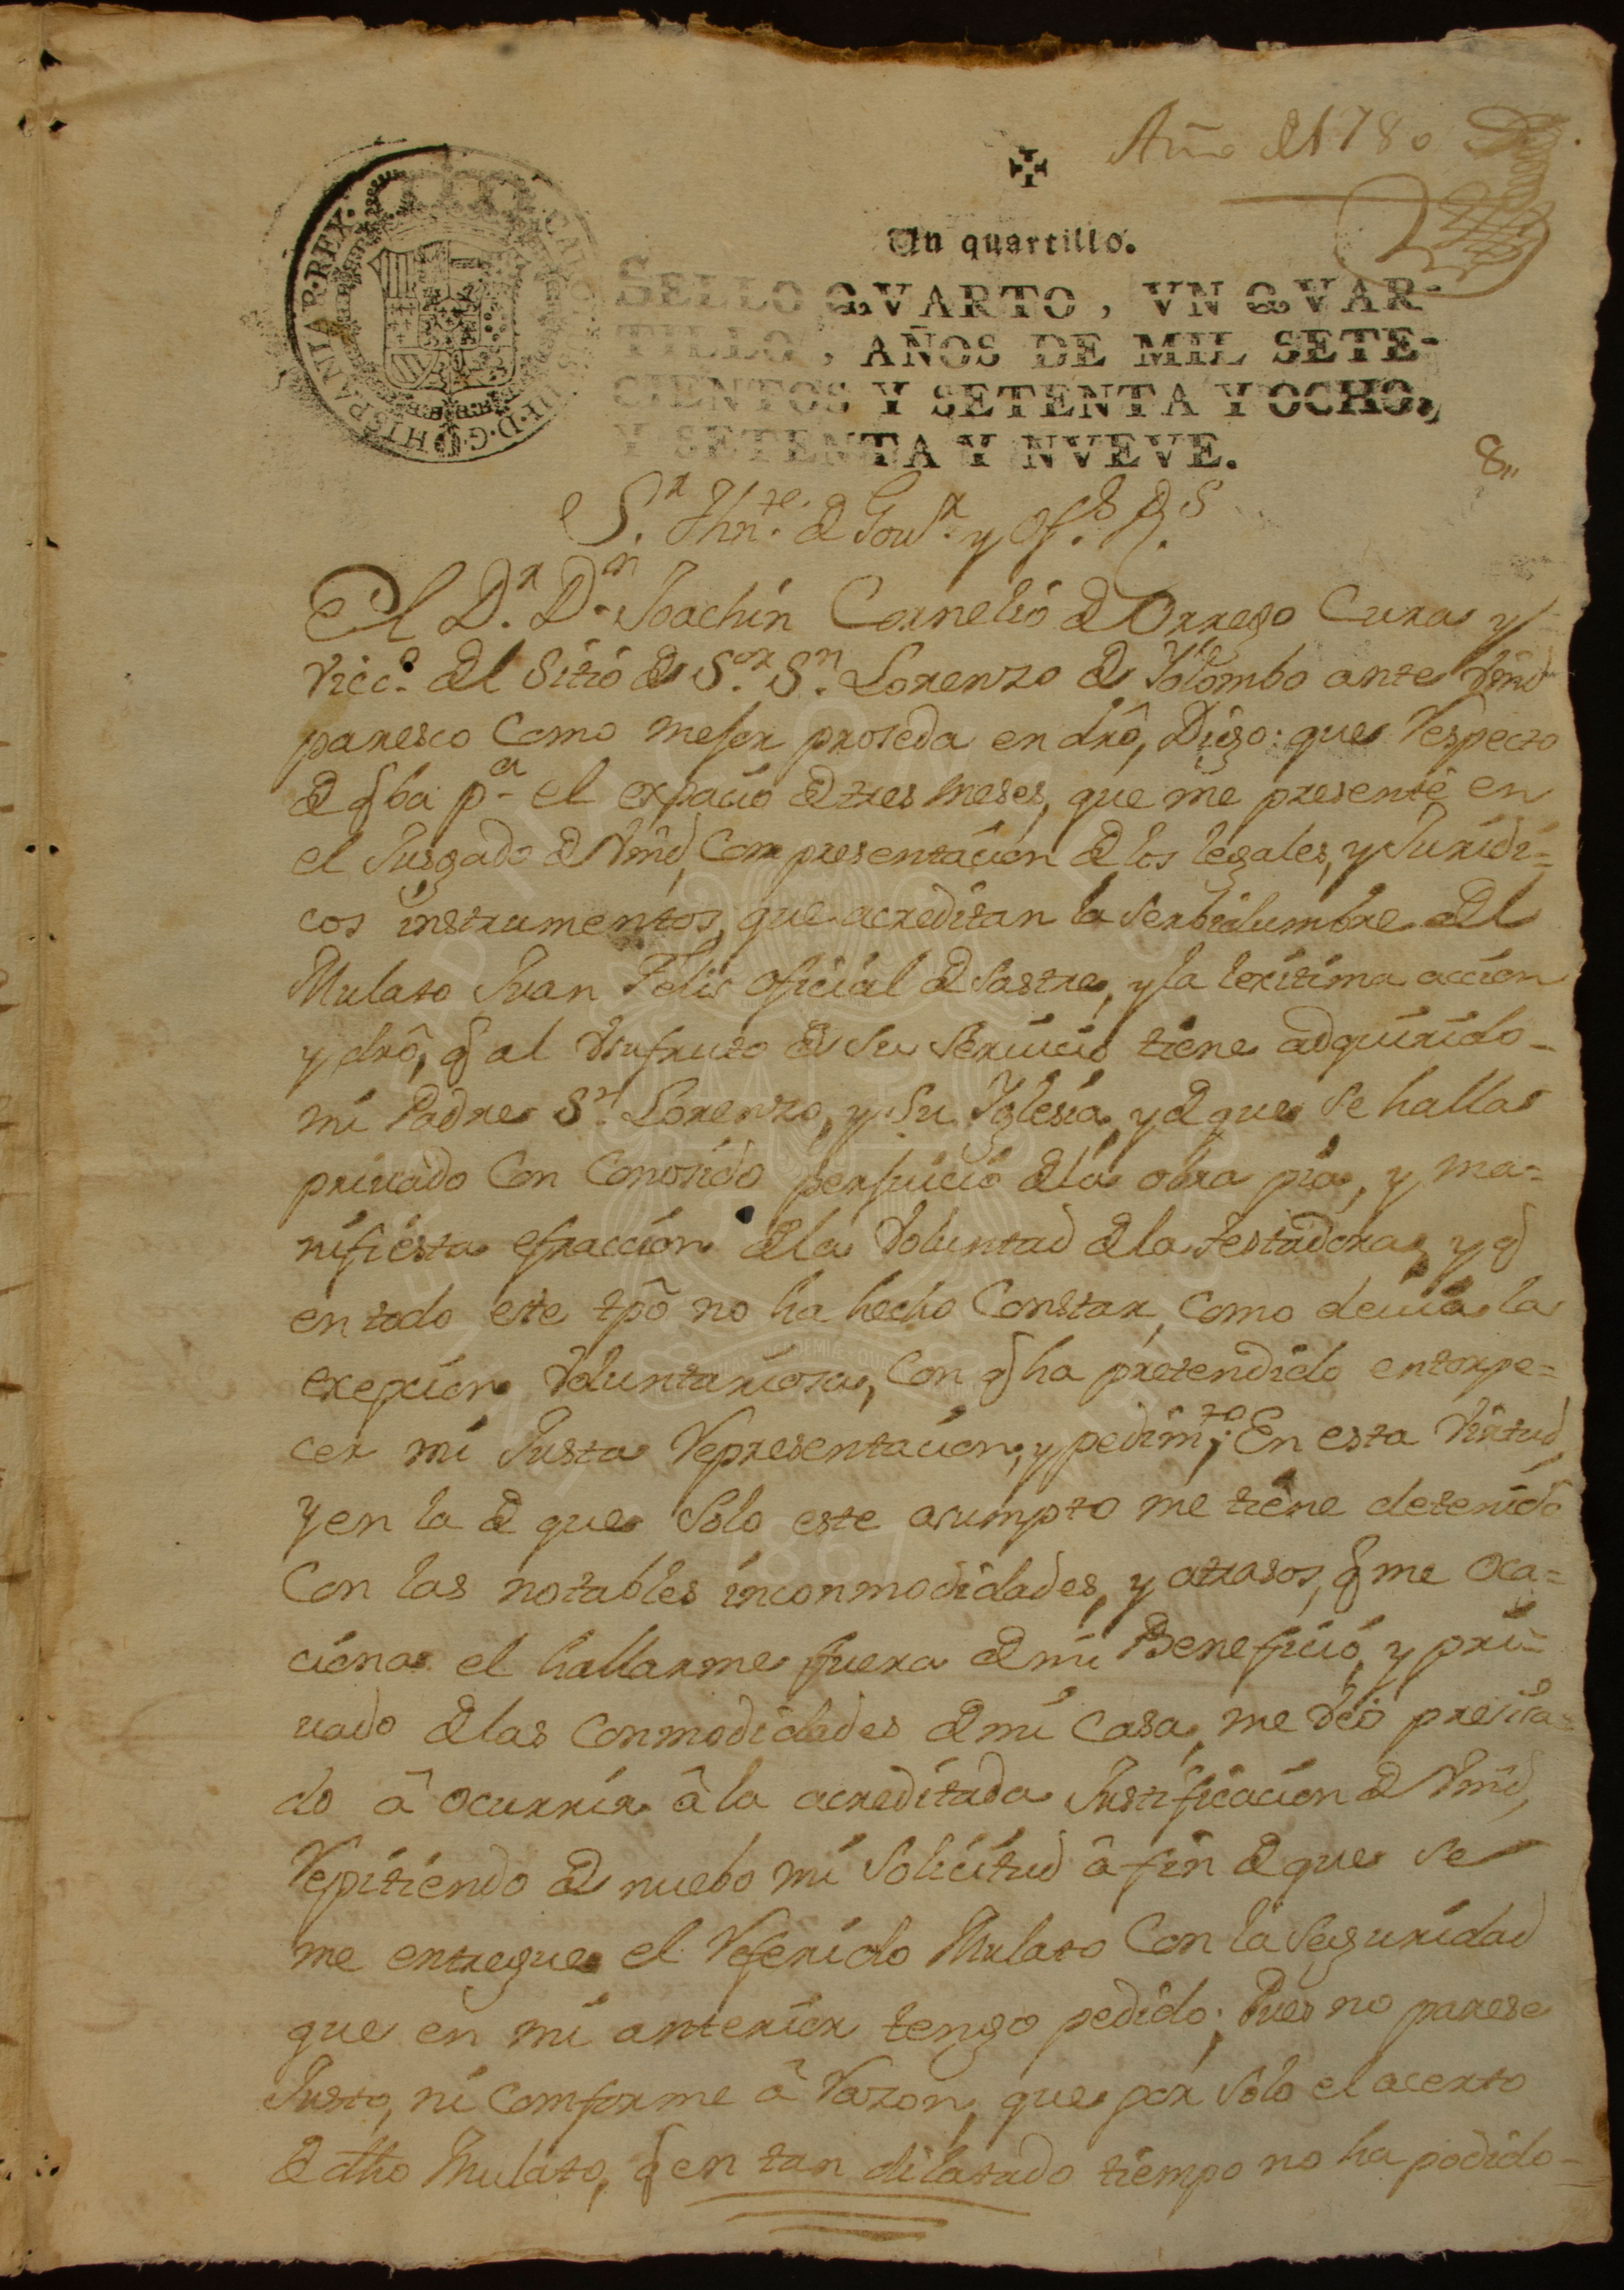 Año de 1780
Un quartillo.
SELLO QVARTO, VN QVAR-
TILLO, AÑOS DE MIL SETE-
CIENTOS Y SETENTA Y OCHO,
Y SETENTA Y NVEVE.
HISPANIAR. REX. CAROLUS III. D. G.
8,,
Sr. Thnte. de Govr. y Ofs. Rs.
El Dr. Dn. Joachin Cornelio de Orrego Cura y
Vicco. del Sitio de Sor. Sn. Lorenzo de Yolombo ante Vmd
paresco como mejor proseda en dro, Digo: que respecto
de q ba pa. el expacio de tres meses, que me presenté en
el Jusgado de Vmd, con presentacion de los legales, y Juridi=
cos instrumentos, que acreditan la serbidumbre del
Mulato Juan Felis oficial de sastre, y la lexitima accion
y dro, q al Vsufruto de su servicio tiene adquirido-
mi Padre Sn. Lorenzo, y su Yglesia, y de que se halla
privado con conosido perjuicio de la obra pia, y ma=
nifiesta efraccion de la Voluntad de la testadora; y q
en todo este tpo no ha hecho constar, como devia la
exepcion Voluntariosa, con q ha pretendido entorpe=
cer mi Justa Representacion, y pedimto; En esta Virtud,
y en la de que solo este asumpto me tiene detenido
con las notables inconmodidades, y atrasos, q me oca=
ciona el hallarme fuera de mi Beneficio, y pri=
vado de las conmodidades de mi casa, me veo presisa=
do â ocurrir â la acreditada Justificacion de Vmd,
Repitiendo de nuebo mi solicitud â fin de que se
me entregue el Referido Mulato con la seguridad
que en mi anterior tengo pedido; Pues no parese
Justo, ni comforme â Razon, que por solo el acerto
de dho Mulato, q en tan dilatado tiempo no ha podido-